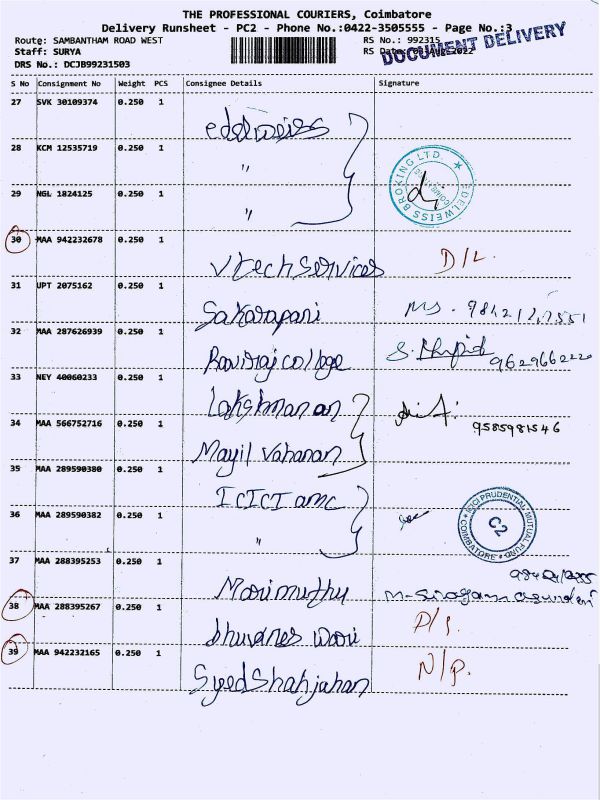 THE PROFESSIONAL COURIERS, Coimbatore
Delivery Runsheet - PC2 - Phone No.:0422-3505555 - Page No.:3
Route: SAMBANTHAM ROAD WEST RS No.: 992315
Staff: SURYA RS Date:
DOCUMENT DELIVERY
DRS No.: DCJB99231503
S No Consignment No Weight PCS Consignee Details Signature
27 SVK 30109374 0.250 1
edelweiss
28 KCM 12535719 0.250 1
"
EDELWEISS BROKING LTD.
29 NGL 1824125 0.250 1
"
30 MAA 942232678 0.250 1
Vtech Services D/L.
31 UPT 2075162 0.250 1
Sakarapani
32 MAA 287626939 0.250 1
Raviraj college
33 NEY 40060233 0.250 1
Lakshmanan
34 MAA 566752716 0.250 1
9585981546
Mayil Vahanan
35 MAA 289590380 0.250 1
ICICI amc
36 MAA 289590382 0.250 1
ICICI PRUDENTIAL MUTUAL FUND
C2
COIMBATORE
"
37 MAA 288395253 0.250 1
Marimuthu
38 MAA 288395267 0.250 1
bhuvanes wari
39 MAA 942232165 0.250 1
N/P.
Syed Shahjahan